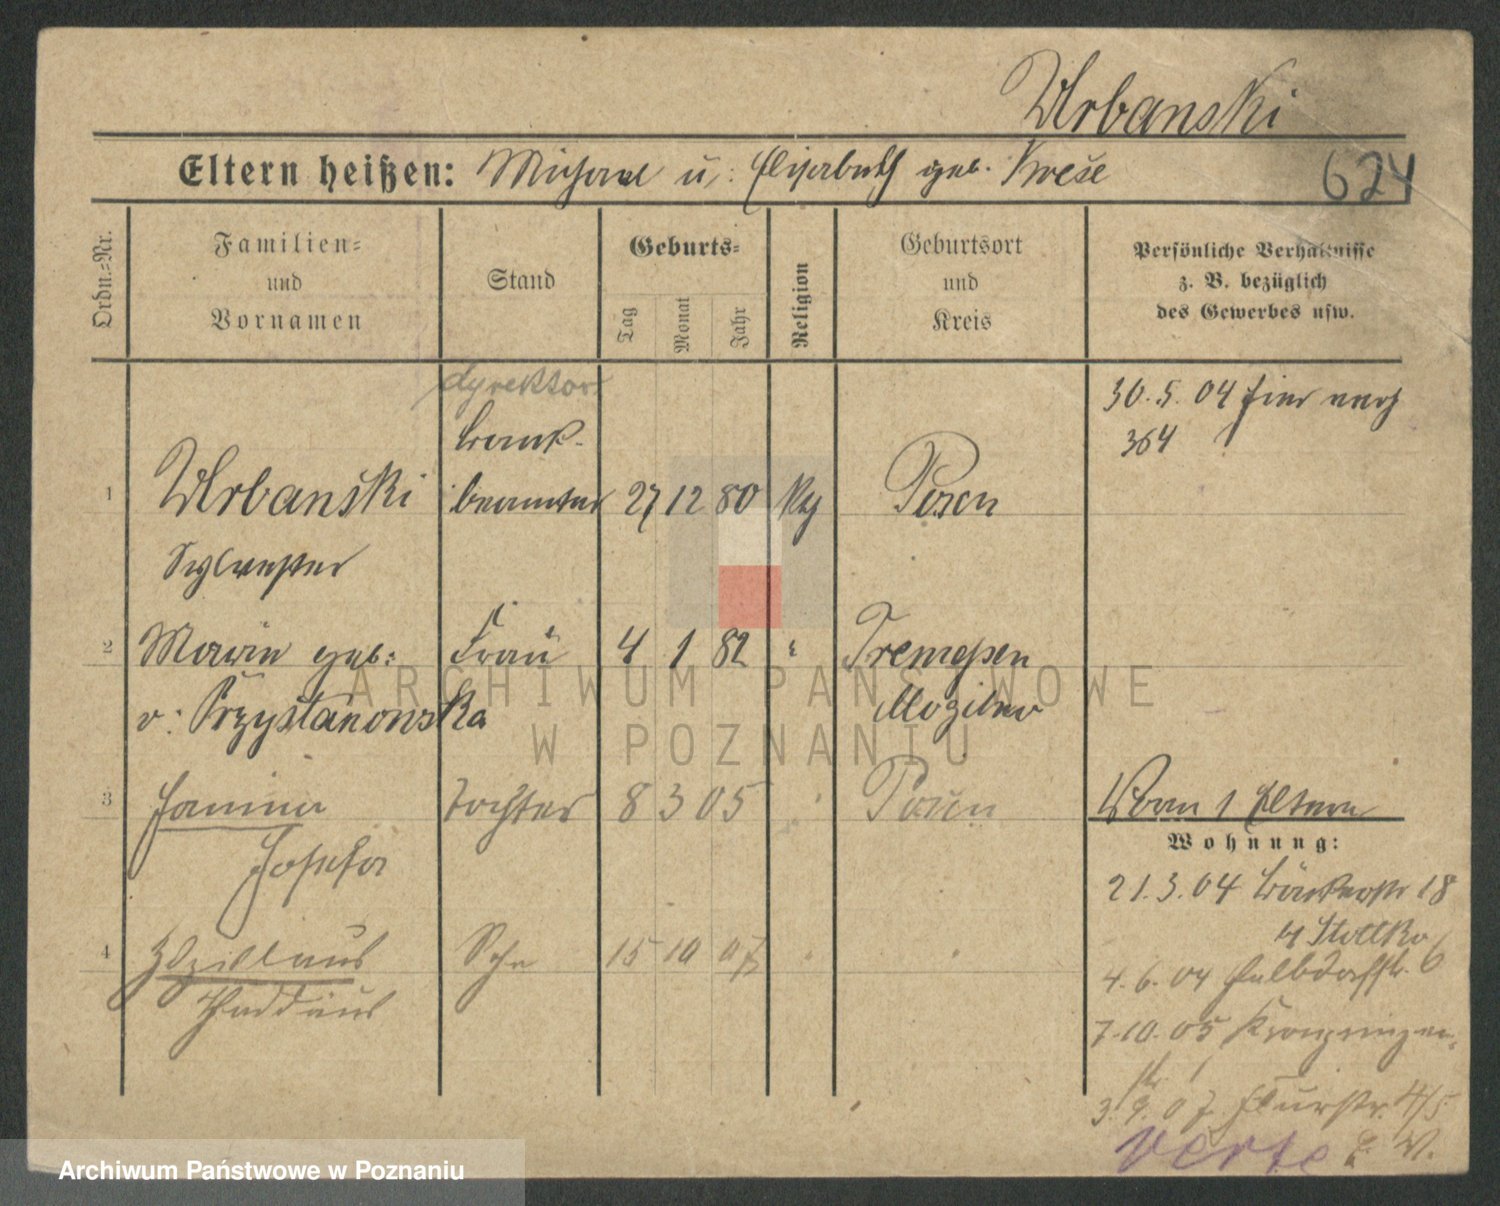 Urbanski
Eltern heißen: Michael u. Elisabeth geb. Krese
624
Ordn.=Nr.
Familien=
und
Vornamen
Stand
Geburts=
Tag
Monat
Jahr
Religion
Geburtsort
und
Kreis
Persönliche Verhältnisse
z. B. bezüglich
des Gewerbes usw.
dyrektor
Bank-
1 Urbanski beamter 27 12 80 Posen
Sylvester
30.5.04 hier nach
364
2 Marie geb: Frau 4 1 82 " Tremessen
v: Krzyżtanowska Mogilno
3 Janina Tochter 8 3 05 " Posen
Josefa
4 Sohn 15 10 07 " "
Thaddäus
Von 1 Eltern
Wohnung:
21.3.04 Bäckerstr 18
4.6.04 Halbdorfstr. 6
7.10.05 Kronprinzen-
str. 1
3.9.07 Flurstr. 4/5
verte
ARCHIWUM PAŃSTWOWE
W POZNANIU
Archiwum Państwowe w Poznaniu